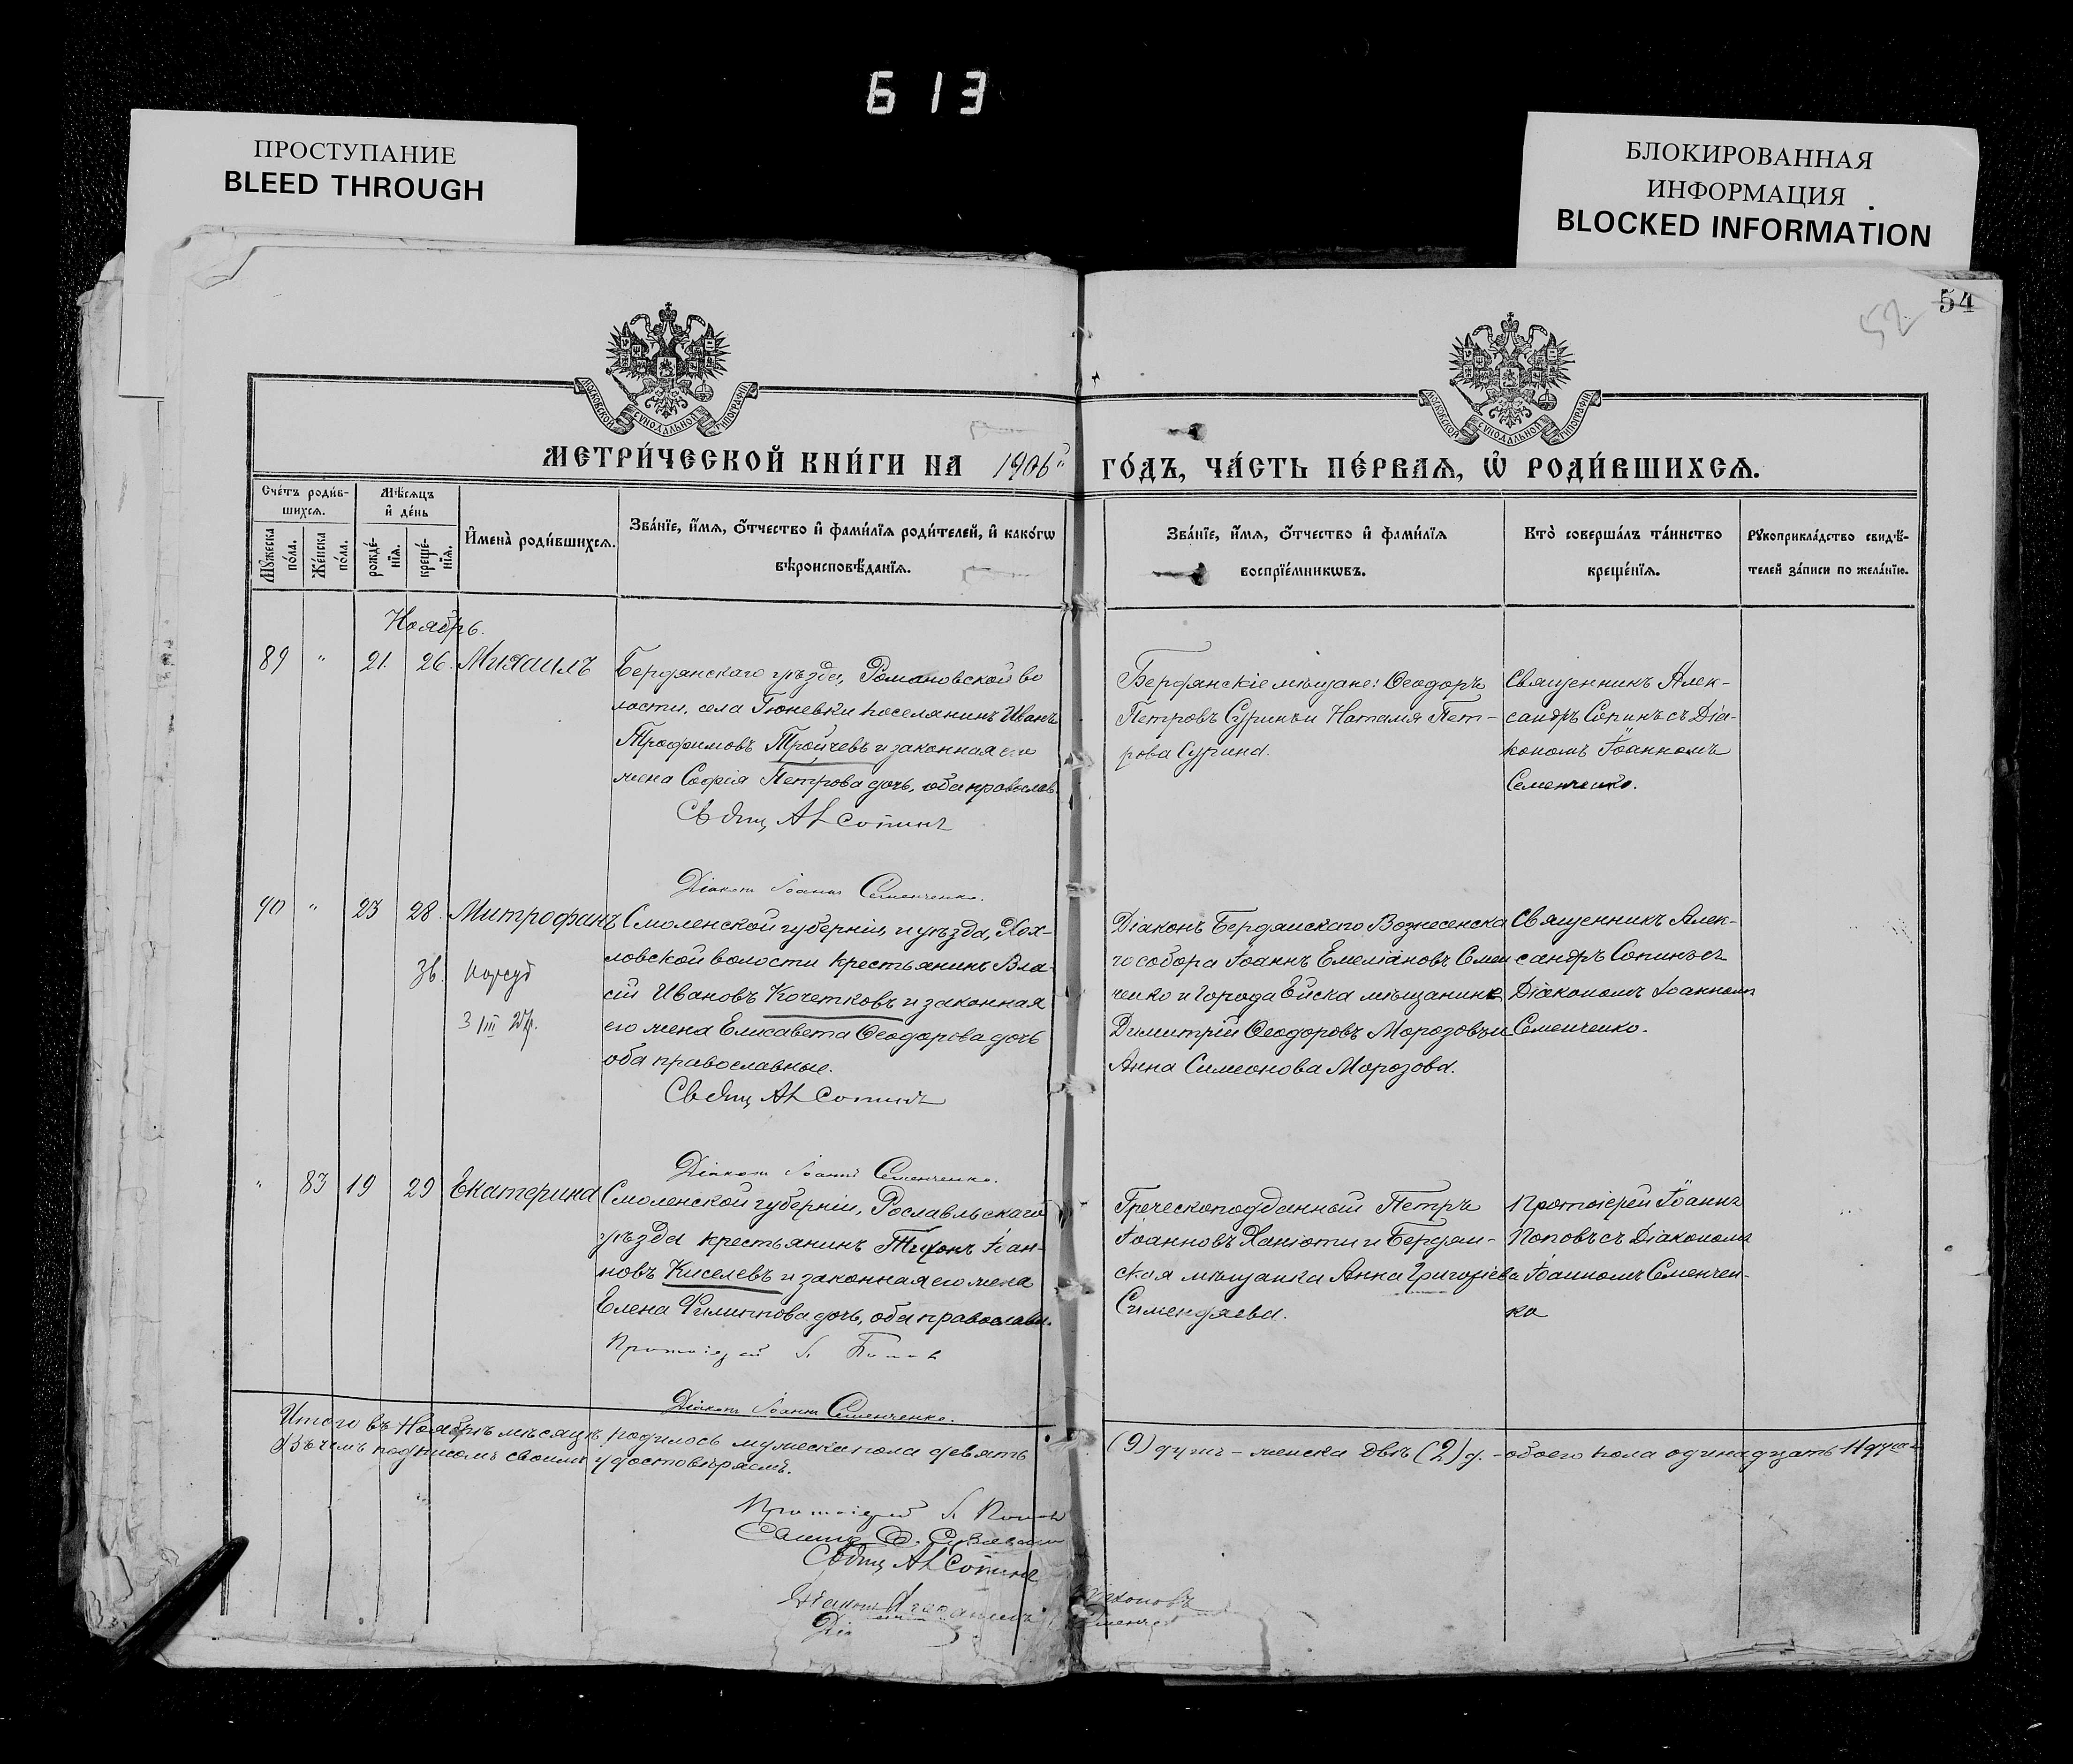 613
ПРОСТУПАНИЕ
BLEED THROUGH
БЛОКИРОВАННАЯ
ИНФОРМАЦИЯ
BLOCKED INFORMATION
54
52
МОСКОВСКОЙ СУНОДАЛЬНОЙ ТИПОГРАФІИ
МОСКОВСКОЙ СУНОДАЛЬНОЙ ТИПОГРАФІИ
МЕТРИ́ЧЕСКОЙ КНИ́ГИ НА 1906 ГО́ДЪ, ЧА́СТЬ ПЕ́РВАѦ, Ѡ҆ РОДИ́ВШИХСѦ.
Сче́тъ роди́в-
шихсѧ.
Мꙋ́жеска по́ла.
Же́нска по́ла.
Мѣ́сѧцъ
и҆ де́нь
рожде́-нїѧ.
креще́-нїѧ.
И҆мена̀ роди́вшихсѧ.
Зва́нїе, и҆́мѧ, ѻ҆́тчество и҆ фами́лїѧ роди́телей, и҆ како́гѡ
вѣроисповѣ́данїѧ.
Зва́нїе, и҆́мѧ, ѻ҆́тчество и҆ фами́лїѧ
воспрїе́мникѡвъ.
Кто̀ соверша́лъ та́инство
креще́нїѧ.
Рꙋкоприкла́дство свидѣ́-
телей за́писи по жела́нїю.
Ноябрь.
89 " 21. 26. Михаилъ
Бердянскаго уѣзда, Романовской во
лости, села Гюневки поселянинъ Иванъ
Трофимовъ Тройчевъ и законная его
жена Софія Петрова дочь, оба православ.
Свящ Ал Сопинъ
Діаконъ Іоаннъ Семенченко.
Бердянскіе мѣщане: Ѳеодоръ
Петровъ Суринъ и Наталія Пет-
рова Сурина.
Священникъ Алек-
сандръ Сопинъ съ Діа-
кономъ Іоанномъ
Семенченко.
90 " 23 28. Митрофанъ
Смоленской губерніи, и уѣзда, Хох-
ловской волости крестьянинъ Вла-
сій Ивановъ Кочетковъ и законная
его жена Елисавета Ѳеодорова дочь
оба православные.
Свящ Ал Сопинъ
Діаконъ Іоаннъ Семенченко.
Діаконъ Бердянскаго Вознесенска
го собора Іоаннъ Емеліановъ Семен
ченко и города Ейска мѣщанинъ
Димитрій Ѳеодоровъ Морозовъ и
Анна Симеонова Морозова.
Священникъ Алек-
сандръ Сопинъ съ
Діакономъ Іоанномъ
Семенченко.
" 83 19 29 Екатерина
Смоленской губерніи, Рославльскаго
уѣзда крестьянинъ Тихонъ Іоан-
новъ Киселевъ и законная его жена
Елена Филиппова дочь, оба православн.
Протоіерей І. Попов
Діаконъ Іоаннъ Семенченко.
Греческоподданный Петръ
Іоанновъ Ханіоти и Бердян-
ская мѣщанка Анна Григоріева
Симендяева.
Протоіерей Іоаннъ
Поповъ съ Діакономъ
Іоанномъ Семенчен-
ко
Итого въ Ноябрѣ мѣсяцѣ родилось мужеска пола девять (9) душъ - женска двѣ (2) д. - обоего пола одинадцать 11 душъ
Въ чемъ подписомъ своимъ удостовѣряемъ.
Протоіерей І. Попов
Свящ Ал Сопинъ